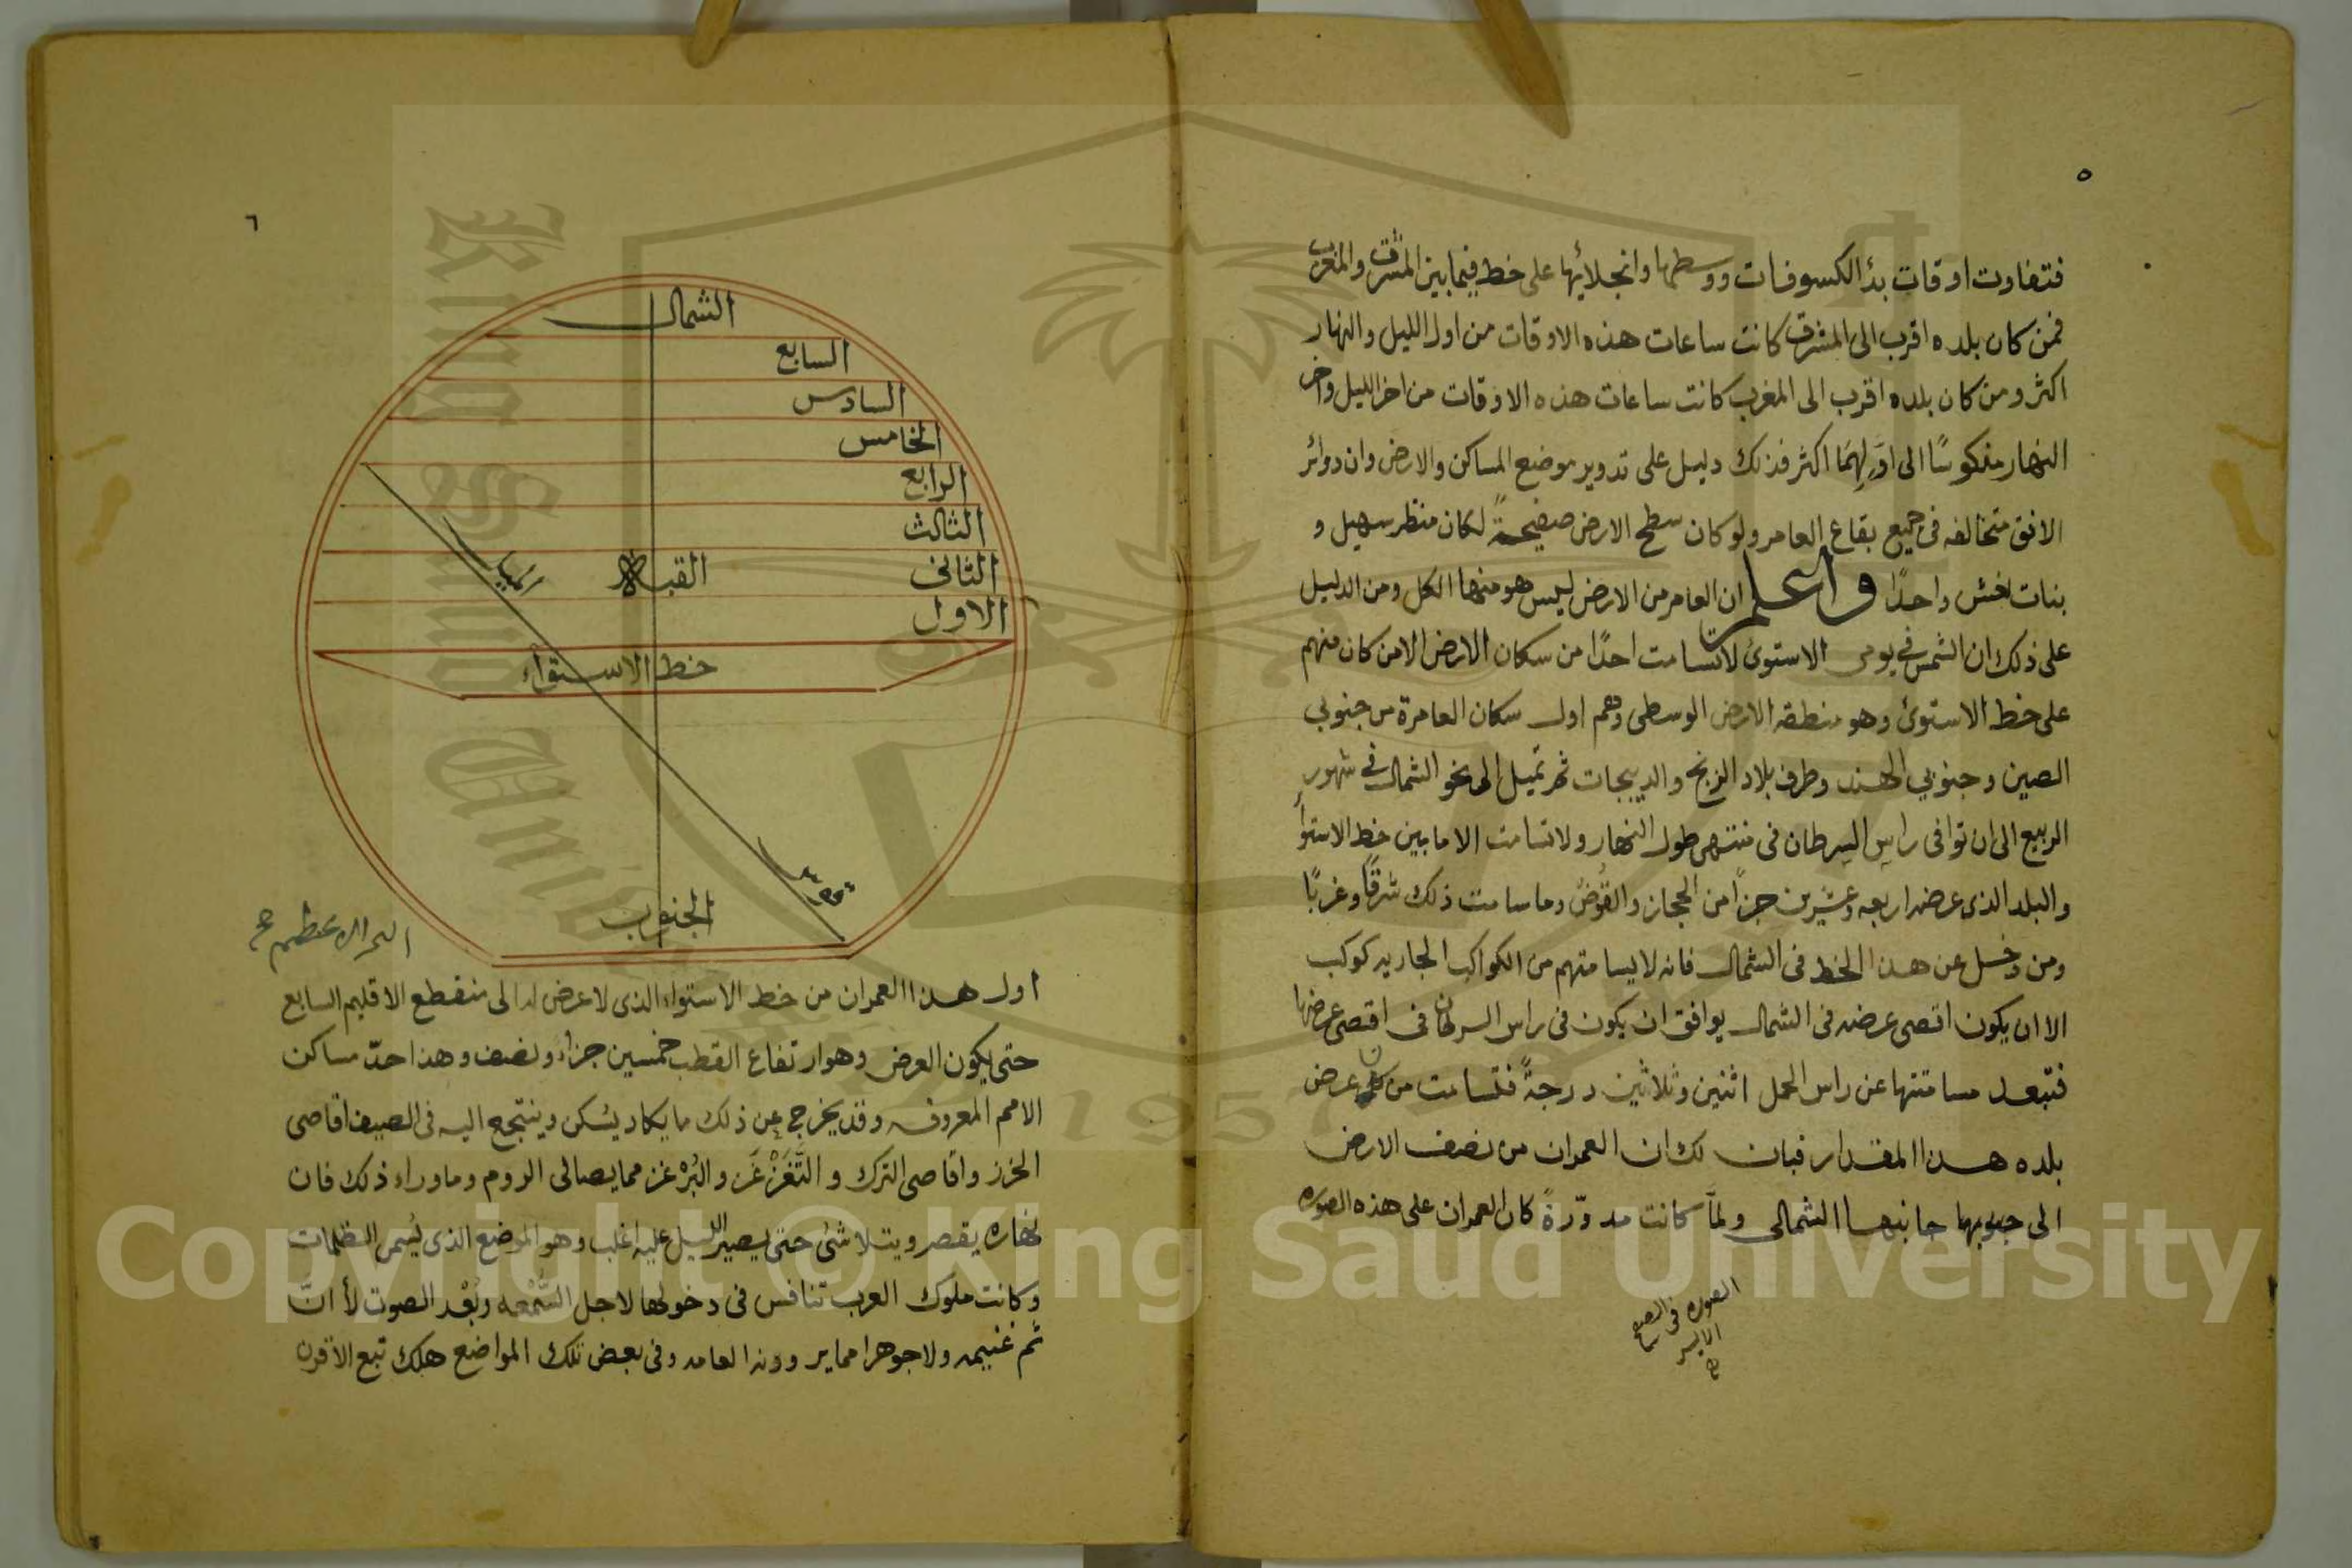 ٥
فتفاوت اوقات بدأ الكسوفات ووسطها وانجلائها على خط فيما بين المشرق والمغرب
فمن كان بلده اقرب الى المشرق كانت ساعات هذه الاوقات من اول الليل والنهار
اكثر ومن كان بلده اقرب الى المغرب كانت ساعات هذه الاوقات من اخر الليل واخر
النهار منكوسًا الى اوّلهما اكثر فذلك دليل على تدوير موضع المساكن والارض وان دوائر
الافق متخالفه فى جميع بقاع العامر ولو كان سطح الارض صفيحةً لكان منظر سهيل و
بنات نعش واحدًا واعلم ان العامر من الارض ليس هو منها الكل ومن الدليل
على ذلك ان الشمس في يومى الاستوئ لا تسامت احدًا من سكان الارض الا من كان منهم
على خط الاستوئ وهو منطقه الارض الوسطى وهم اول سكان العامرة من جنوبي
الصين وجنوبي الهند وطرف بلاد الزنج والديبجات ثم تميل الى نحو الشمال في شهور
الربيع الى ان توافى راس السرطان فى منتهى طول النهار ولا تسامت الا ما بين خط الاستوأ
والبلد الذى عرضه اربعه وعشرين جزأ من الحجاز والقوض وما سامت ذلك شرقًا وغربًا
ومن دخل عن هذا الخط فى الشمال فانه لا يسامتهم من الكواكب الجاريه كوكب
الا ان يكون اقصى عرضه فى الشمال يوافق ان يكون فى راس السرطان فى اقصى عرضها
فتبعد مسامتتها عن راس الحمل اثنين وثلاثين درجةً فتسامت من عرض
بلده هذا المقدار فبان لك ان العمران من نصف الارض
الى جنوبها جانبها الشمالى ولمّا كانت مدوّرةً كان العمران على هذه الصوره
الصوره فى الصفح
الايسر
٦
الشمال
السابع
السادس
الخامس
الرابع
الثالث
الثانى
الاول
القبلة
خط الاستوآء
الجنوب
البحر الاعظم
اول هذا العمران من خط الاستواء الذى لا عرض له الى منقطع الاقليم السابع
حتى يكون العرض وهو ارتفاع القطب خمسين جزاء ونصف وهذا حدّ مساكن
الامم المعروفه وقد يخرج عن ذلك ما يكاد يسكن وينتجع اليه فى الصيف اقاصى
الخزز واقاصى الترك والتَّغَزْغَز والبُرْغز مما يصالى الروم وما وراء ذلك فان
نهاره يقصر ويتلاشئ حتى يصير الليل عليه اغلب وهو الموضع الذى يُسمى الظلمات
وكانت ملوك العرب تنافس فى دخولها لاجل السُّمْعه وبُعْد الصوت لأ انَّ
ثَم غنيمه ولا جوهرا مما ير وونه العامه وفى بعض تلك المواضع هلك تبع الاقرن
Copyright © King Saud University
King Saud University
1957